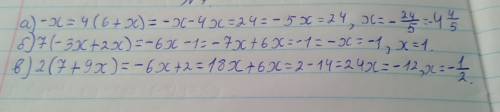 а) -x = 4(6+x) = -x-4x = 24 = -5x = 24, x = -24/5 = -4 4/5
б) 7(-3x+2x) = -6x-1 = -7x+6x = -1 = -x = -1, x = 1.
в) 2(7+9x) = -6x+2 = 18x+6x = 2-14 = 24x = -12, x = -1/2.